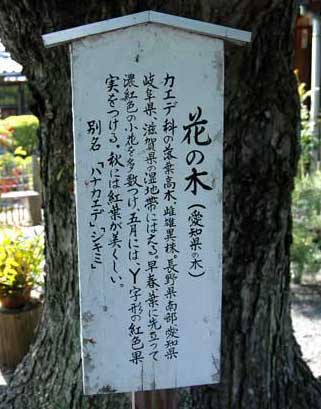 花の木(愛知県の木)
カエデ科の落葉高木、雌雄異株。長野県南部、愛知県
岐阜県、滋賀県の湿地帯にはえる。早春、葉に先立って
濃紅色の小花を多数つけ、五月には、Y字形の紅色果
実をつける。秋には紅葉が美くしい。
別名 「ハナカエデ」「シキミ」